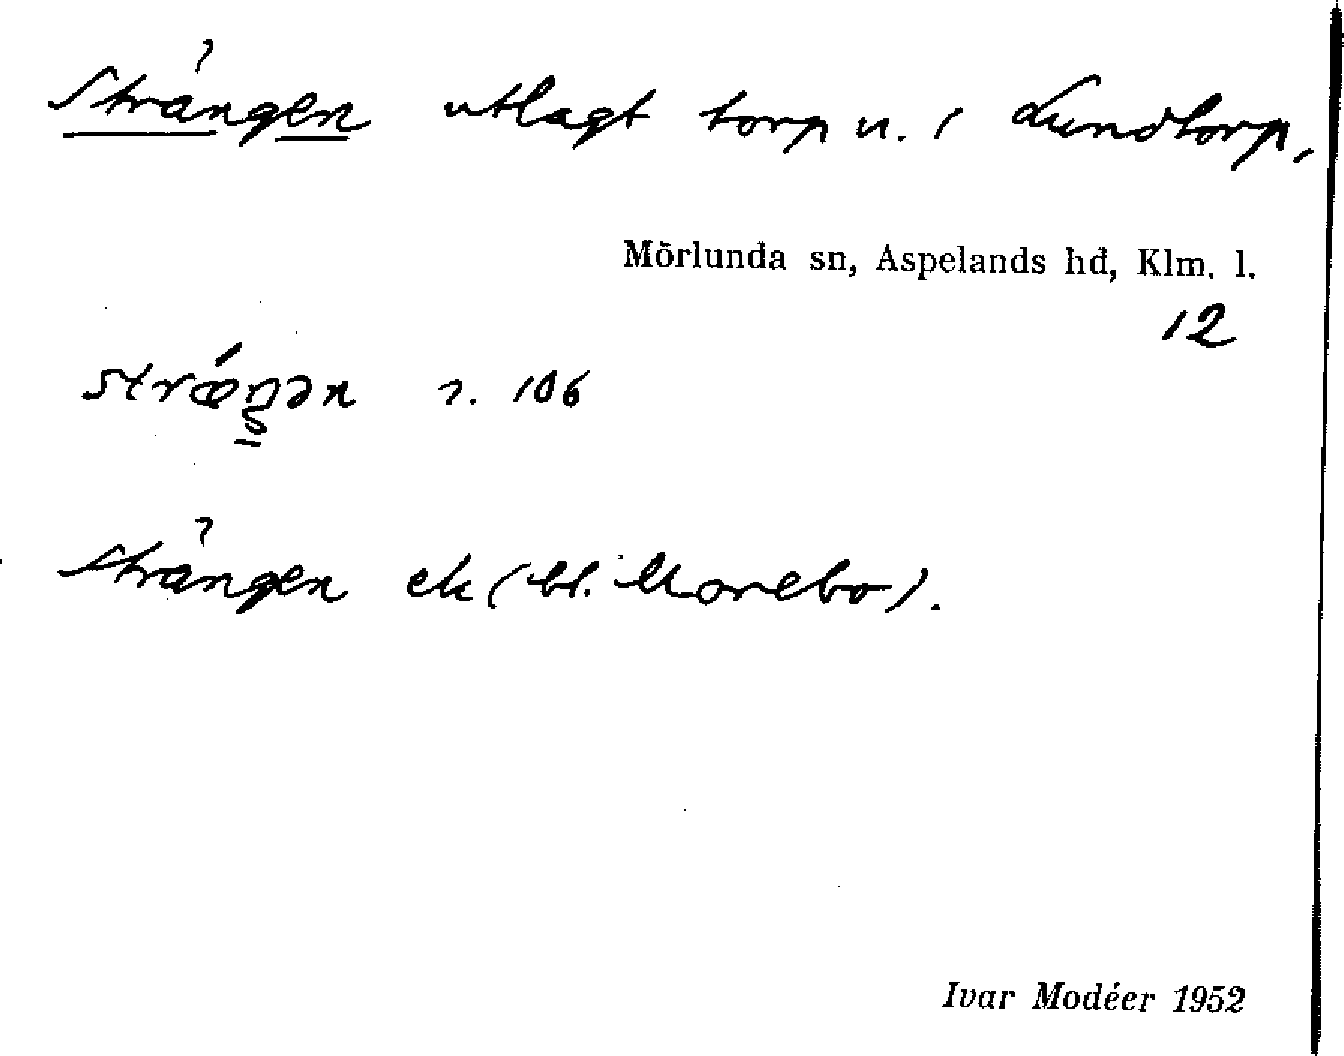 Strängen utlagt torp u. 1 Lundtorp,
Mörlunda sn, Aspelands hd, Klm. l.
12
stræ´ŋən s. 106
Strängen ek (bl. Morebo).
Ivar Modéer 1952